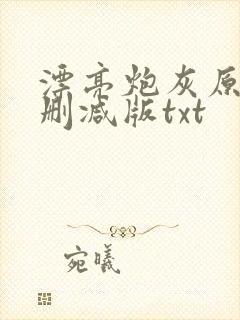 漂亮炮灰原
删减版txt
宛曦